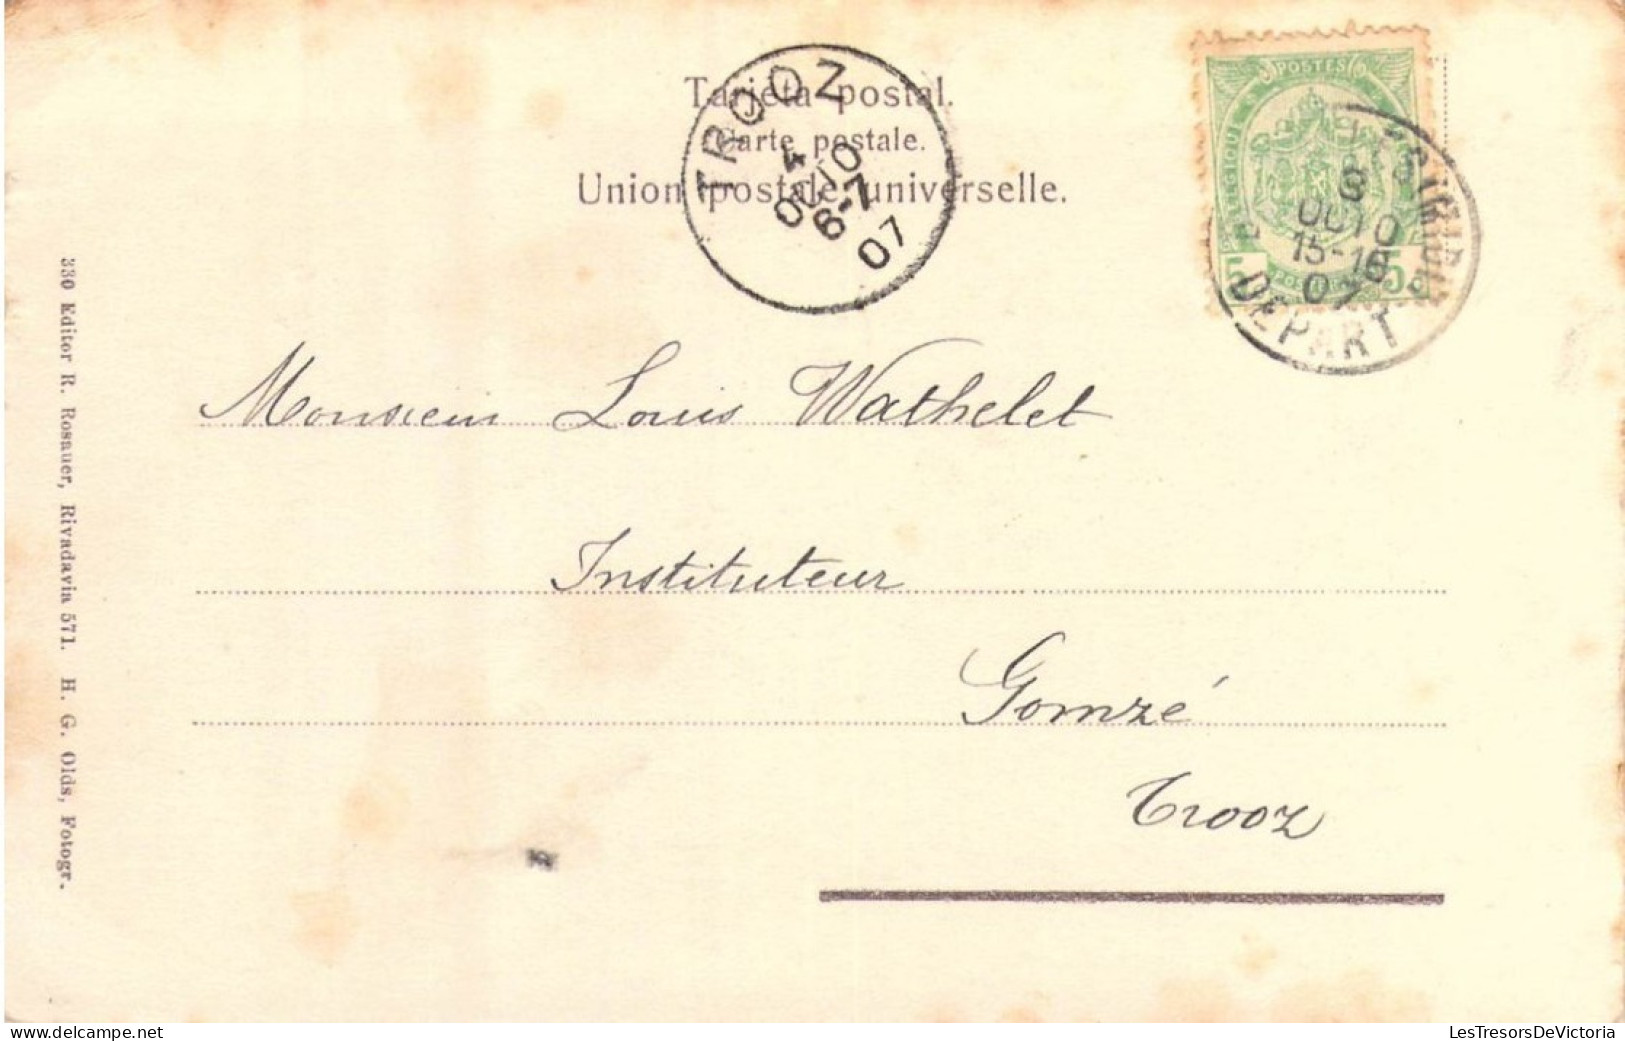 Tarjeta postal.
Carte postale.
Union postale universelle.
TROOZ
4
OCTO
6-7
07
POSTES
BELGIQUE
5 5
8
OCTO
15-16
07
DEPART
Monsieur Louis Wathelet
Instituteur
Gomzé
Trooz
330 Editor R. Rosauer, Rivadavia 571. H. G. Olds, Fotogr.
LesTresorsDeVictoria
www.delcampe.net